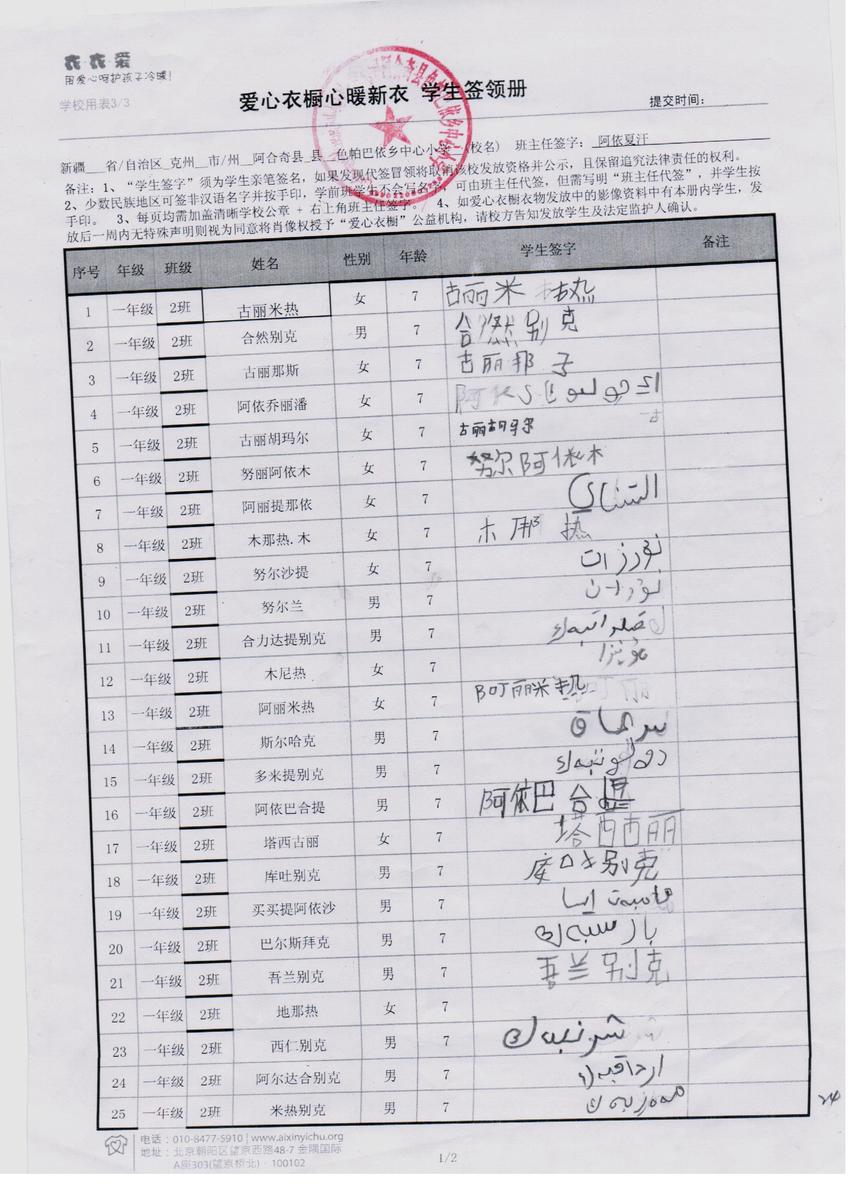 衣·衣·爱
用爱心呵护孩子冷暖!
学校用表3/3
爱心衣橱心暖新衣 学生签领册
提交时间:
新疆 省/自治区 克州 市/州 阿合奇县 县 色帕巴依乡中心小学 (校名) 班主任签字: 阿依夏汗
备注:1、“学生签字”须为学生亲笔签名,如果发现代签冒领将取消该校发放资格并公示,且保留追究法律责任的权利。
2、少数民族地区可签非汉语名字并按手印,学前班学生不会写名字,可由班主任代签,但需写明“班主任代签”,并学生按
手印。 3、每页均需加盖清晰学校公章 + 右上角班主任签字。 4、如爱心衣橱衣物发放中的影像资料中有本册内学生,发
放后一周内无特殊声明则视为同意将肖像权授予“爱心衣橱”公益机构,请校方告知发放学生及法定监护人确认。
序号 年级 班级 姓名 性别 年龄 学生签字 备注
1 一年级 2班 古丽米热 女 7 古丽米 热
2 一年级 2班 合然别克 男 7 合然别克
3 一年级 2班 古丽那斯 女 7 古丽那
4 一年级 2班 阿依乔丽潘 女 7
5 一年级 2班 古丽胡玛尔 女 7 古丽胡玛尔
6 一年级 2班 努丽阿依木 女 7 努尔阿依木
7 一年级 2班 阿丽提那依 女 7
8 一年级 2班 木那热.木 女 7 木那 热
9 一年级 2班 努尔沙提 女 7
10 一年级 2班 努尔兰 男 7
11 一年级 2班 合力达提别克 男 7
12 一年级 2班 木尼热 女 7
13 一年级 2班 阿丽米热 女 7 阿丽米热
14 一年级 2班 斯尔哈克 男 7
15 一年级 2班 多米提别克 男 7
16 一年级 2班 阿依巴合提 男 7 阿依巴合提
17 一年级 2班 塔西古丽 女 7 塔西古丽
18 一年级 2班 库吐别克 男 7 库吐别克
19 一年级 2班 买买提阿依沙 男 7
20 一年级 2班 巴尔斯拜克 男 7
21 一年级 2班 吾兰别克 男 7 吾兰别克
22 一年级 2班 地那热 女 7
23 一年级 2班 西仁别克 男 7
24 一年级 2班 阿尔达合别克 男 7
25 一年级 2班 米热别克 男 7
24
电话:010-8477-5910 | www.aixinyichu.org
地址:北京朝阳区望京西路48-7 金隅国际
A座303(望京桥北)· 100102
1/2